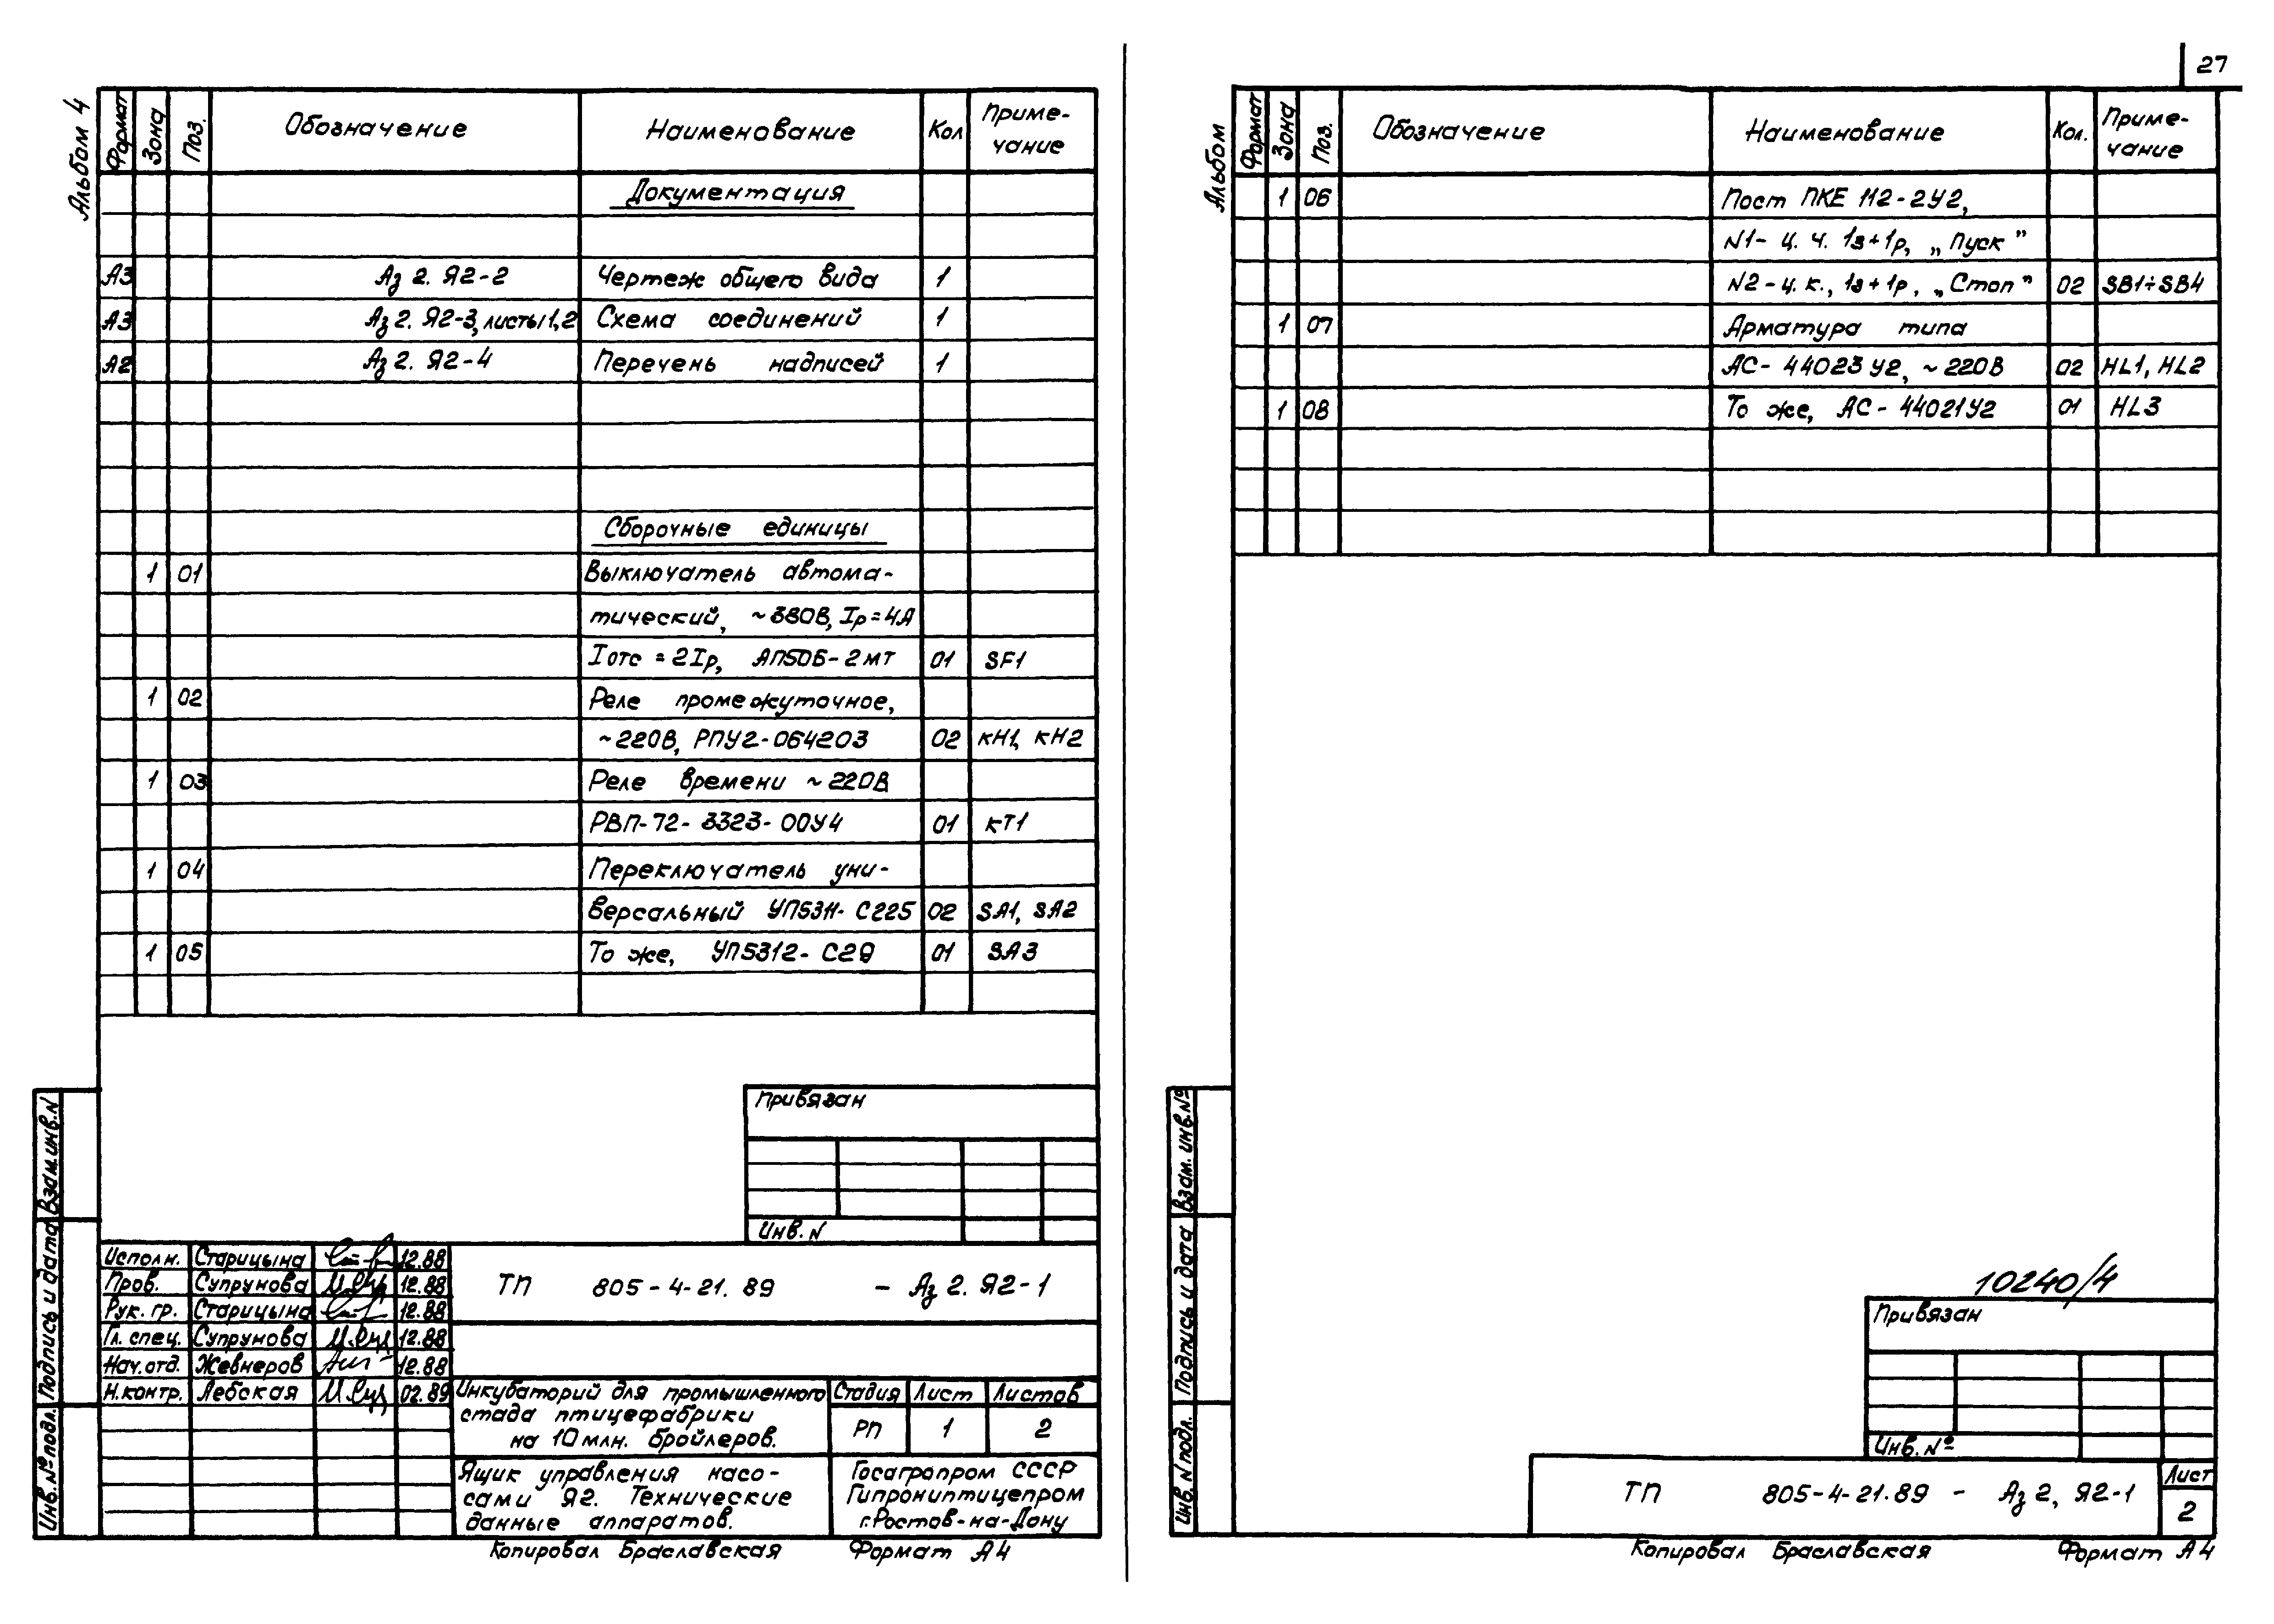 Альбом 4
Формат Зона Поз. Обозначение Наименование Кол Приме-
чание
Документация
А3 Аз 2. Я2-2 Чертеж общего вида 1
А3 Аз 2. Я2-3, листы 1,2 Схема соединений 1
А2 Аз 2. Я2-4 Перечень надписей 1
Сборочные единицы
1 01 Выключатель автома-
тический, ~380В, Iр=4А
Iотс = 2Iр, АП50Б-2МТ 01 SF1
1 02 Реле промежуточное,
~220В, РПУ2-064203 02 КН1, КН2
1 03 Реле времени ~220В
РВП-72-3323-00У4 01 КТ1
1 04 Переключатель уни-
версальный УП5311-С225 02 SA1, SA2
1 05 То же, УП5312-С29 01 SA3
Привязан
Инв. N
Взам.инв.N
Подпись и дата
Инв.№ подл.
Исполн. Старицына 12.88
Пров. Супрунова 12.88
Рук. гр. Старицына 12.88
Гл. спец. Супрунова 12.88
Нач.отд. Жевнеров 12.88
Н.контр. Лебская 02.89
ТП 805-4-21.89 - Аз 2. Я2-1
Инкубаторий для промышленного
стада птицефабрики
на 10 млн. бройлеров.
Стадия Лист Листов
РП 1 2
Ящик управления насо-
сами Я2. Технические
данные аппаратов.
Госагропром СССР
Гипрониптицепром
г.Ростов-на-Дону
Копировал Браславская Формат А4
27
Альбом
Формат Зона Поз. Обозначение Наименование Кол. Приме-
чание
1 06 Пост ПКЕ 112-2У2,
N1- ц. ч. 1з+1р, „Пуск”
N2-ц. к., 1з+1р, „Стоп” 02 SB1÷SB4
1 07 Арматура типа
АС-44023У2, ~220В 02 HL1, HL2
1 08 То же, АС-44021У2 01 HL3
Взам. инв.№
Подпись и дата
Инв. N подл.
10240/4
Привязан
Инв. №
ТП 805-4-21.89 - Аз 2, Я2-1
Лист
2
Копировал Браславская Формат А4